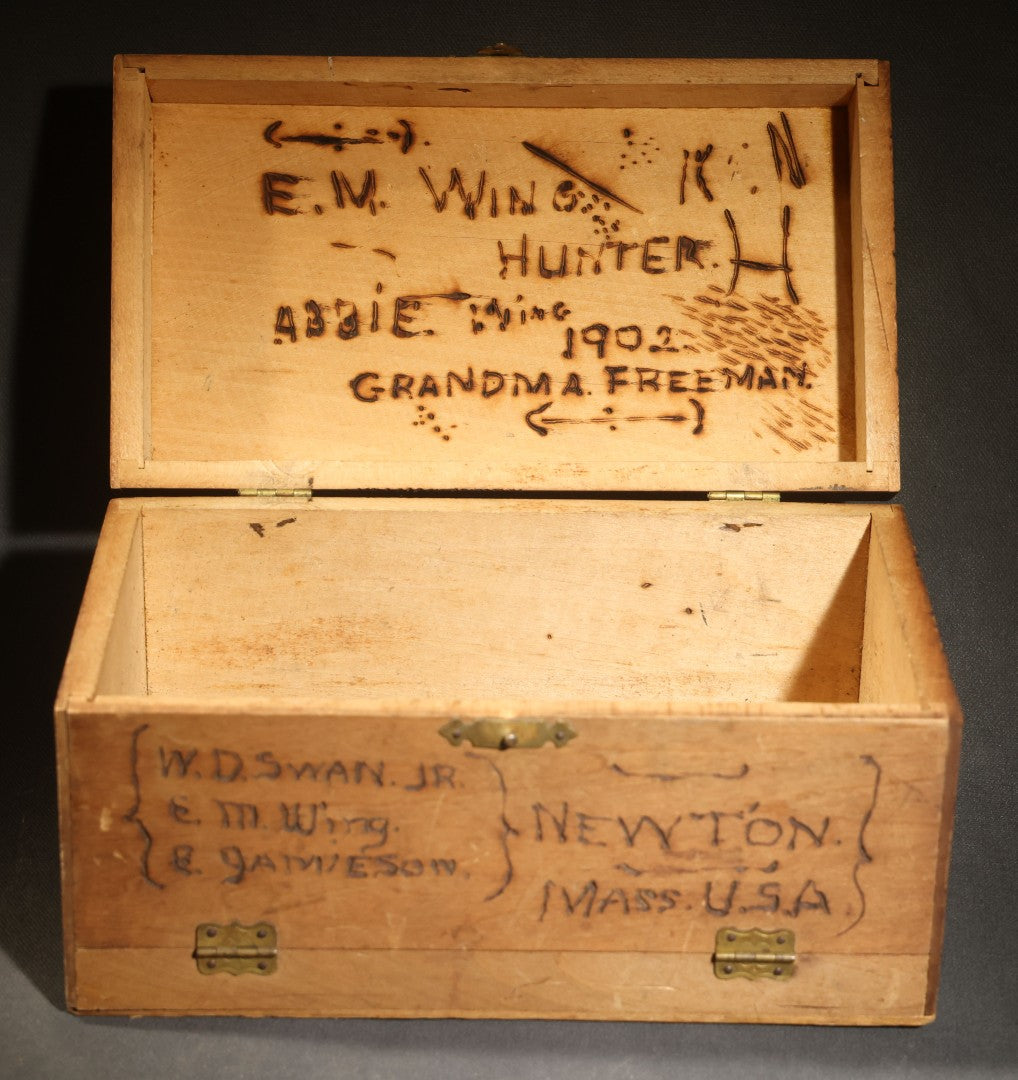 E. M. WING
K N
HUNTER. H
ABBIE. Wing
1902.
GRANDMA. FREEMAN.
W. D. SWAN. JR.
E. M. Wing.
E. JAMIESON.
NEWTON.
MASS. U.S.A